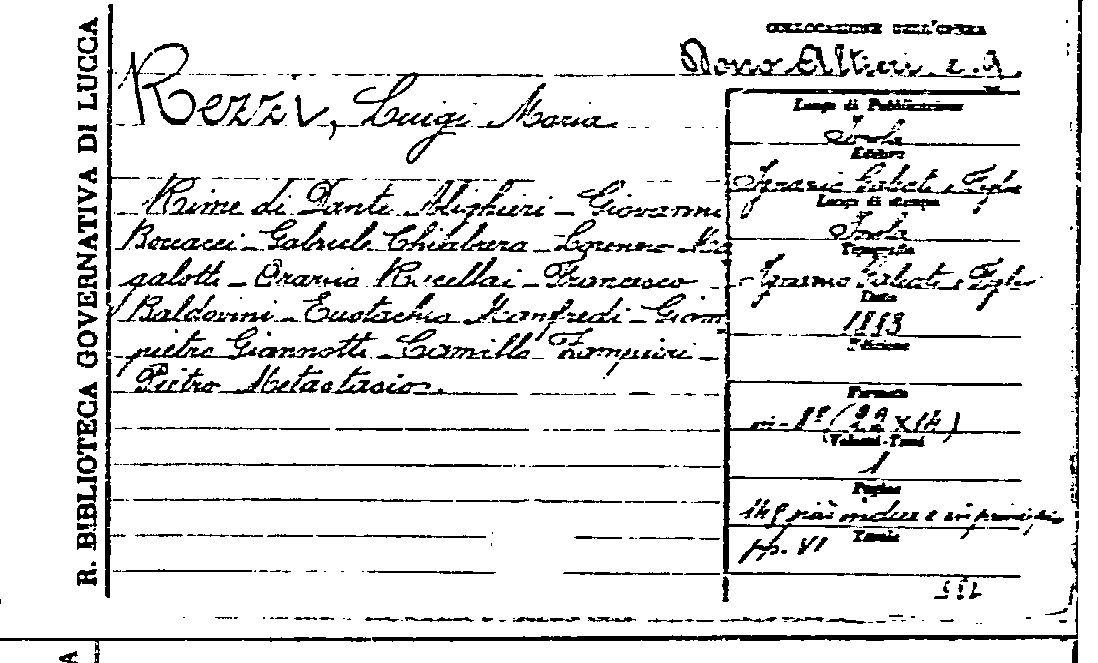 R. BIBLIOTECA GOVERNATIVA DI LUCCA
COLLOCAZIONE DELL'OPERA
Dono Altieri. 2. 9.
Rezzi, Luigi Maria
Rime di Dante Alighieri - Giovanni
Boccacci - Gabriele Chiabrera - Lorenzo Ma
galotti - Orazio Rucellai - Francesco
Baldovini - Eustachio Manfredi - Giam
pietro Giannotti - Camillo Zampieri -
Pietro Metastasio.
Luogo di Pubblicazione
Imola
Editore
Ignazio Galeati e Figlio
Luogo di stampa
Imola
Tipografia
Ignazio Galeati e Figlio
Data
Edizione
Formato
in-8° (22 x 14)
Volumi-Tomi
1
Pagine
più indice e in principio
Tavole
pp. VI
A